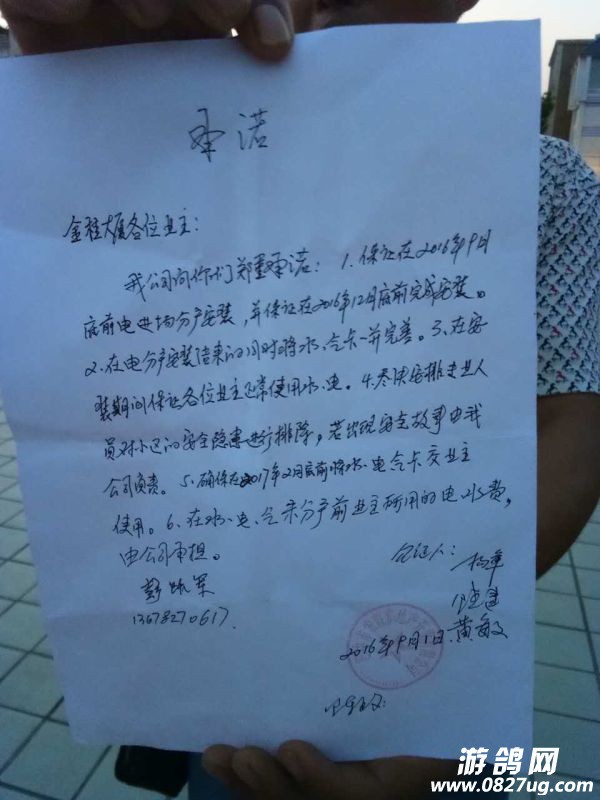 承诺
金程大厦各位业主：
我公司向你们郑重承诺：1、保证在2016年9月
底前电进场分户安装，并保证在2016年12月底前完成安装。
2、在电分户安装结束的同时将水、气卡一并完善。3、在安
装期间保证各位业主正常使用水、电。4、尽快安排专业人
员对小区的安全隐患进行排除，若出现安全故事由我
公司负责。5、确保在2017年2月底前将水、电气卡交业主
使用。6、在水、电、气未分户前业主所用的电水费，
由公司承担。
见证人：
13678270617.
2016年9月1日 黄敏
游鸽网
www.0827ug.com